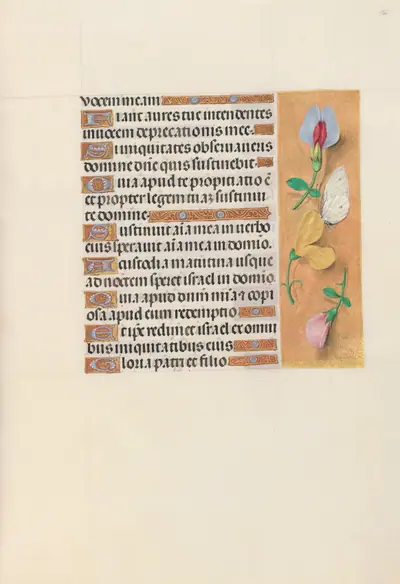 vocem meam
Fiant aures tue intendentes
in vocem deprecationis mee.
Si iniquitates observaveris
domine dñe quis sustinebit.
Quia apud te propitiatio ē
et propter legem tuā sustinui
te domine.
Sustinuit aīa mea in verbo
eius speravit aīa mea in domino.
A custodia matutina usque
ad noctem speret israel in domino.
Quia apud dnūm mīa et copi
osa apud eum redemptio.
Et ipse redimet israel ex omni
bus iniquitatibus eius
Gloria patri et filio